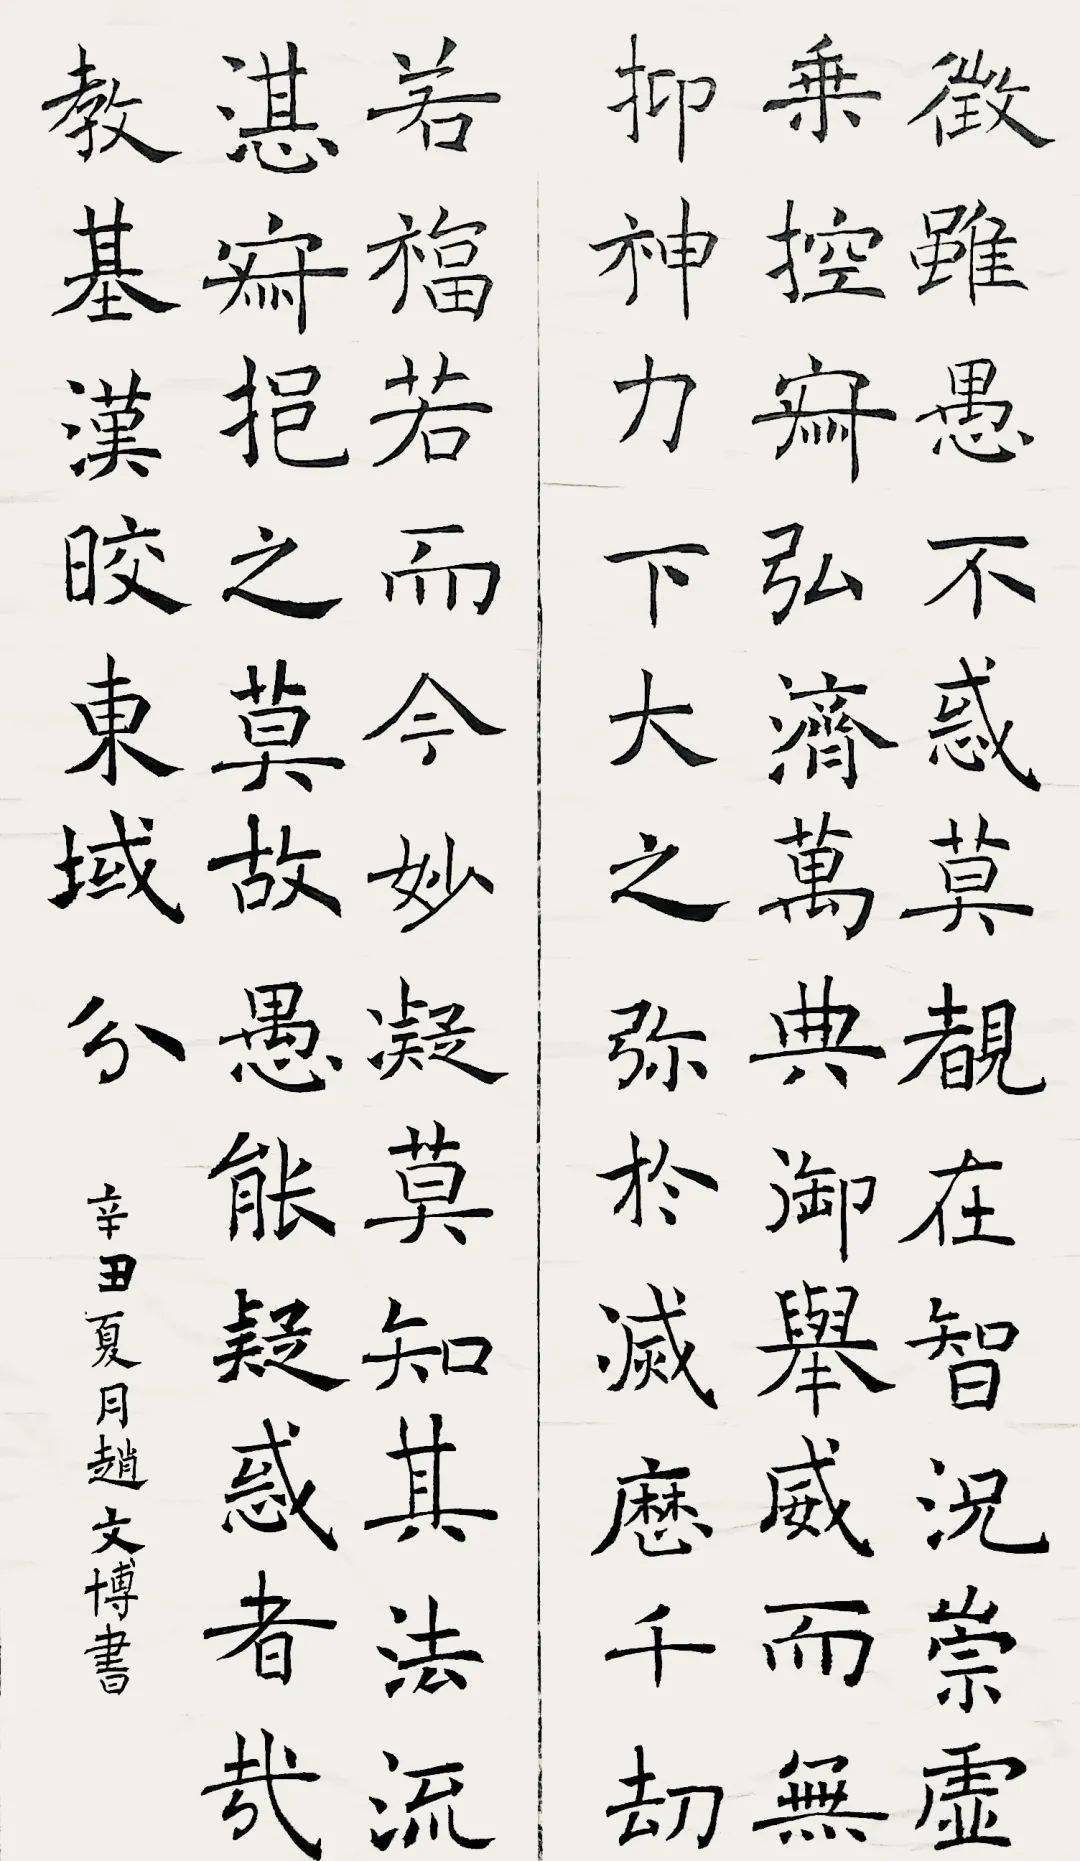 徵雖愚不惑莫覩在智況崇虛
乗控寂弘濟萬典御舉威而無
抑神力下大之弥於滅歷千劫
若福若而今妙凝莫知其法流
湛寂挹之莫故愚能疑惑者哉
教基漢晈東域分
辛丑夏月趙文博書